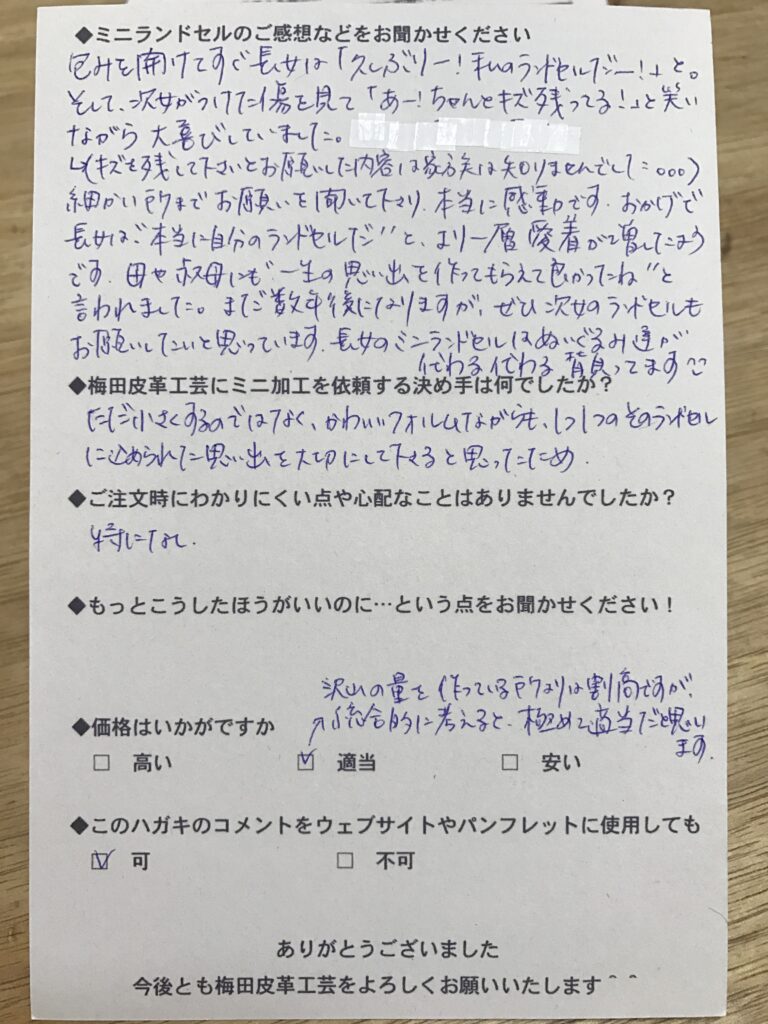 ◆ミニランドセルのご感想などをお聞かせください
包みを開けてすぐ長女は「久しぶりー!私のランドセルだー!」と。
そして、次女がつけた傷を見て「あー!ちゃんとキズ残ってる!」と笑い
ながら大喜びしていました。
↳(キズを残して下さいとお願いした内容は家族は知りませんでした…。)
細かい所までお願いを聞いて下さり、本当に感動です。おかげで
長女は"本当に自分のランドセルだ"と、より一層愛着が増したよう
です。母や叔母にも"一生の思い出を作ってもらえて良かったね"と
言われました。まだ数年後になりますが、ぜひ次女のランドセルも
お願いしたいと思っています。長女のミニランドセルはぬいぐるみ達が
代わる代わる背負ってます
◆梅田皮革工芸にミニ加工を依頼する決め手は何でしたか?
ただ小さくするのではなく、かわいいフォルムながらも、1つ1つのそのランドセル
に込められた思い出を大切にして下さると思ったため。
◆ご注文時にわかりにくい点や心配なことはありませんでしたか?
特になし。
◆もっとこうしたほうがいいのに…という点をお聞かせください!
沢山の量を作っている所よりは割高ですが、
◆価格はいかがですか
↗総合的に考えると、極めて適当だと思い
ます。
□ 高い ☑ 適当 □ 安い
◆このハガキのコメントをウェブサイトやパンフレットに使用しても
☑ 可 □ 不可
ありがとうございました
今後とも梅田皮革工芸をよろしくお願いいたします＾＾